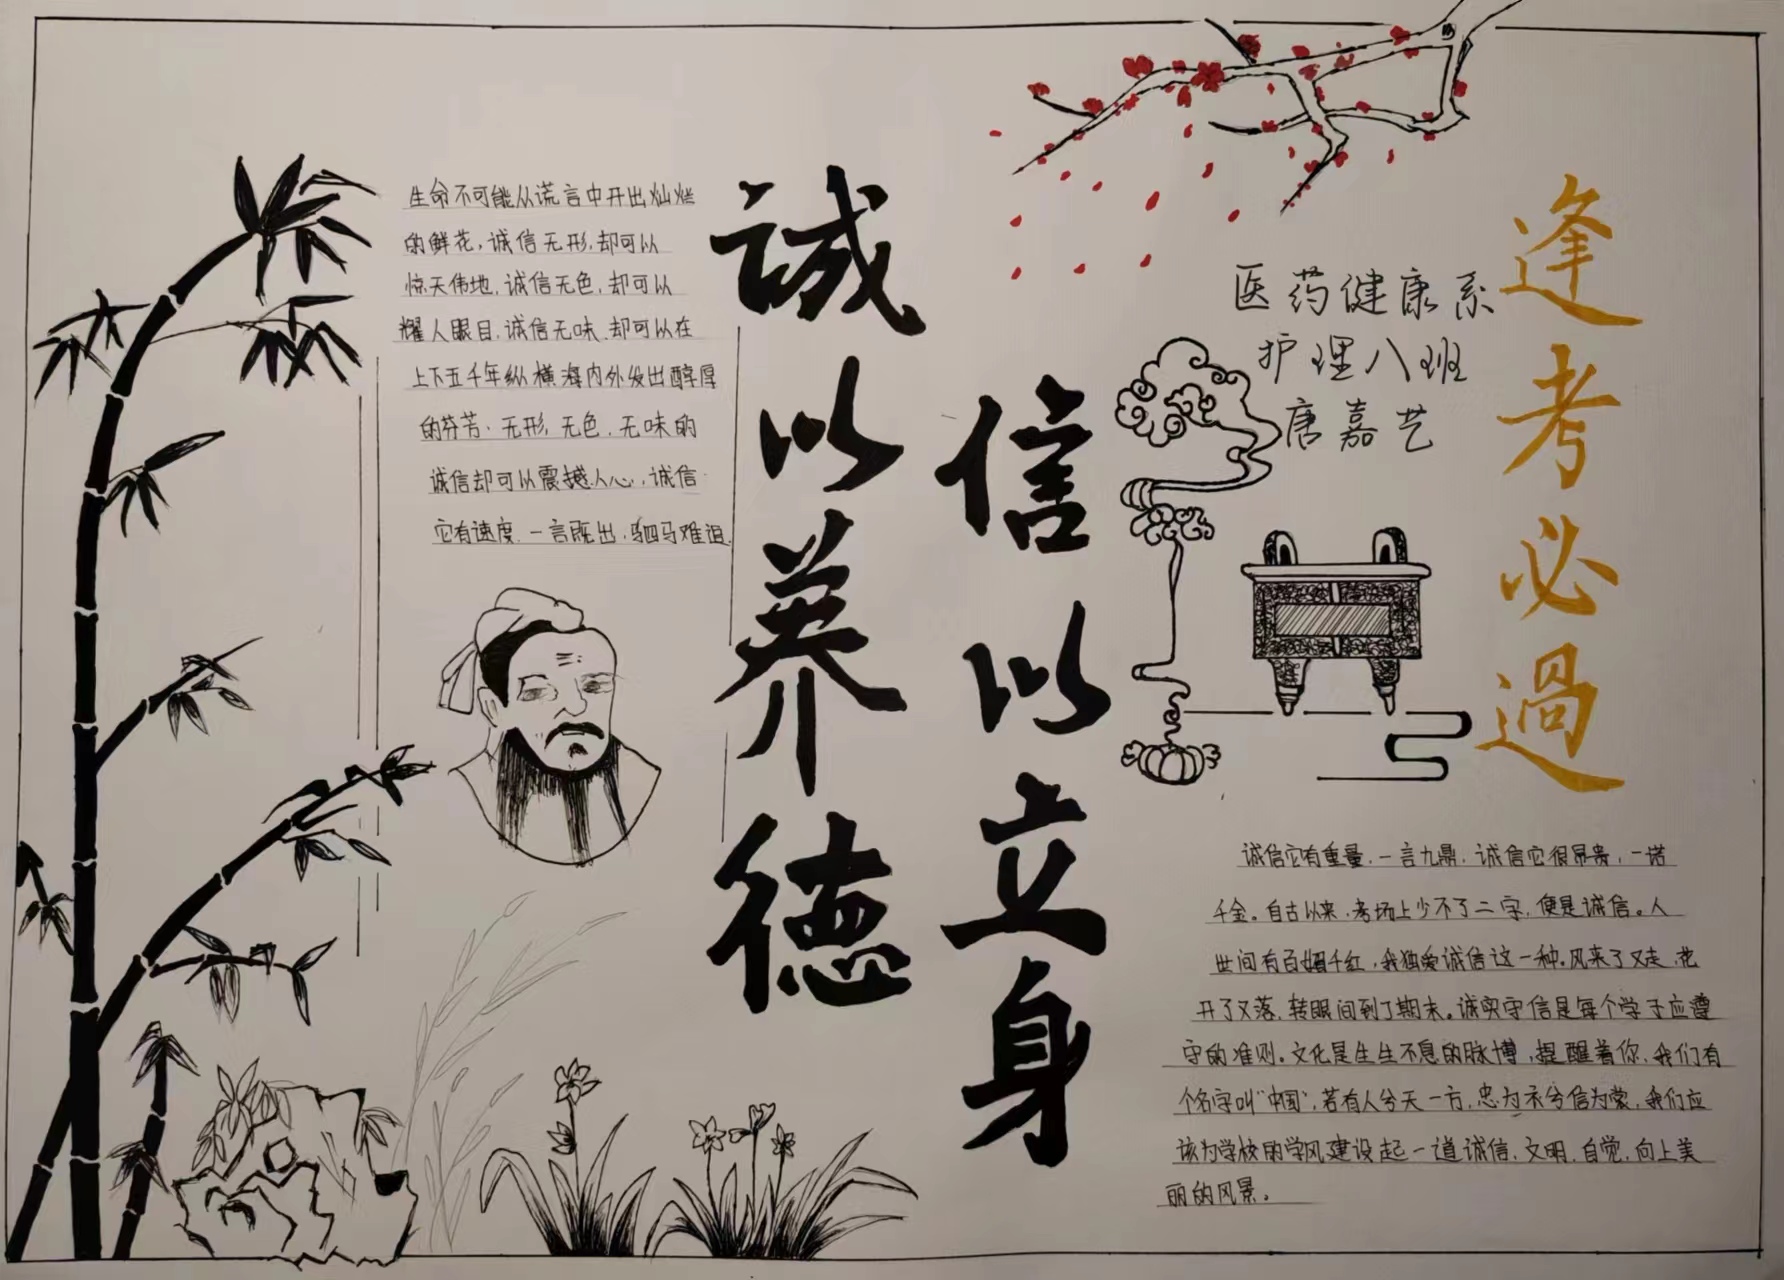 生命不可能从谎言中开出灿烂
的鲜花,诚信无形,却可以
惊天伟地,诚信无色,却可以
耀人眼目,诚信无味,却可以在
上下五千年纵横海内外发出醇厚
的芬芳.无形,无色,无味的
诚信却可以震撼人心,诚信
它有速度,一言既出,驷马难追
誠以养德
信以立身
医药健康系
护理八班
唐嘉艺
逢考必過
诚信它有重量,一言九鼎,诚信它很昂贵,一诺
千金。自古以来,考场上少不了二字,便是诚信。人
世间有百媚千红,我独爱诚信这一种。风来了又走,花
开了又落,转眼间到了期末。诚实守信是每个学子应遵
守的准则。文化是生生不息的脉博,提醒着你,我们有
个名字叫“中国”,若有人兮天一方,忠为衣兮信为裳,我们应
该为学校的学风建设起一道诚信,文明,自觉,向上美
丽的风景。